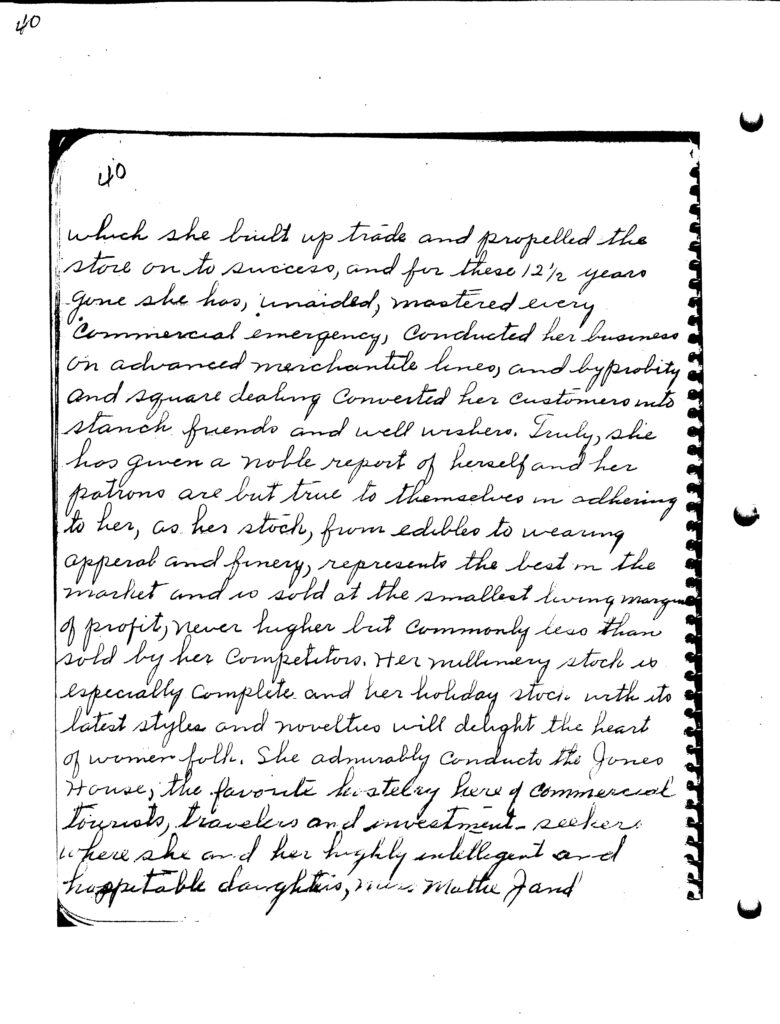 40
40
which she built up trade and propelled the
store on to success, and for these 12 1/2 years
gone she has, unaided, mastered every
commercial emergency, conducted her business
on advanced merchantile lines, and by probity
and square dealing converted her customers into
stanch friends and well wishers. Truly, she
has given a noble report of herself and her
patrons are but true to themselves in adhering
to her, as her stock, from edibles to wearing
apperal and finery, represents the best in the
market and is sold at the smallest living margin
of profit, never higher but commonly less than
sold by her competitors. Her millinery stock is
especially complete and her holiday stock with its
latest styles and novelties will delight the heart
of women folk. She admirably conducts the Jones
House, the favorite hostelry here of commercial
tourists, travelers and investment-seekers
where she and her highly intellegent and
hospitable daughters, Mattie J and